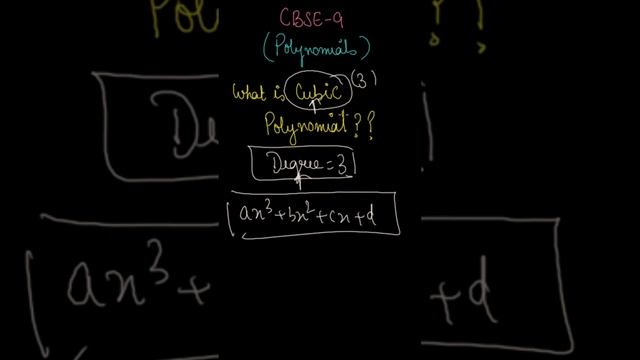 CBSE-9
(Polynomials)
What is Cubic (3)
Polynomial??
Degree = 3
ax³+bx²+cx+d